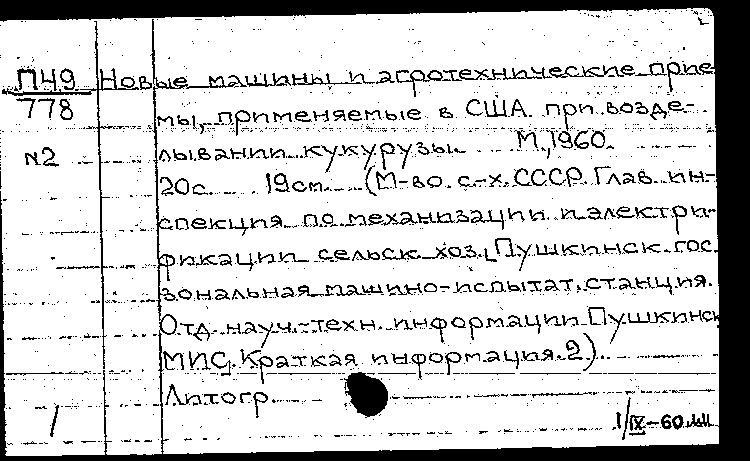 П49
778
№2
Новые машины и агротехнические прие
мы, применяемые в США при возде-
лывании кукурузы. М., 1960.
20с. 19см. (М-во с-х. СССР. Глав. ин-
спекция по механизации и электри-
фикации сельск. хоз. Пушкинск. гос.
зональная машино-испытат. станция.
Отд. науч.-техн. информации Пушкинск
МИС. Краткая информация. 2).
Литогр.
1/IX-60